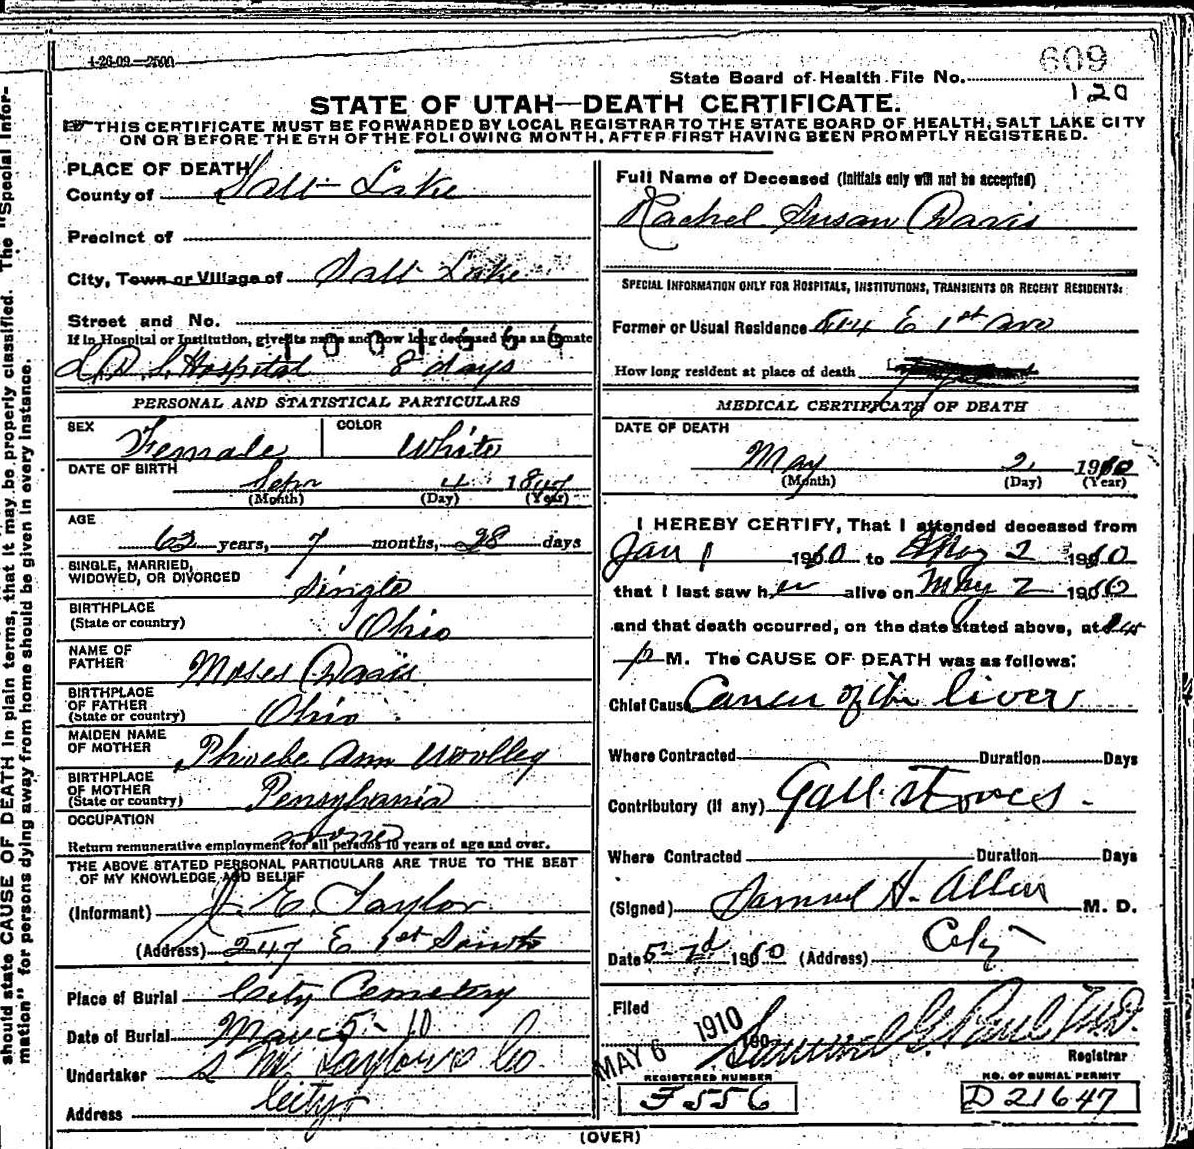 4-26-09—2500
State Board of Health File No. 609
120
STATE OF UTAH—DEATH CERTIFICATE.
THIS CERTIFICATE MUST BE FORWARDED BY LOCAL REGISTRAR TO THE STATE BOARD OF HEALTH, SALT LAKE CITY
ON OR BEFORE THE 5TH OF THE FOLLOWING MONTH, AFTER FIRST HAVING BEEN PROMPTLY REGISTERED.
should state CAUSE OF DEATH in plain terms, that it may be properly classified. The "Special Infor-
mation" for persons dying away from home should be given in every instance.
PLACE OF DEATH
County of Salt Lake
Precinct of
City, Town or Village of Salt Lake
Street and No.
If in Hospital or Institution, give its name and how long deceased was an inmate
L.D.S. Hospital 8 days
PERSONAL AND STATISTICAL PARTICULARS
SEX Female
COLOR White
DATE OF BIRTH
Sepr 4
(Month) (Day) (Year)
AGE
62 years, 7 months, 28 days
SINGLE, MARRIED,
WIDOWED, OR DIVORCED Single
BIRTHPLACE
(State or country) Ohio
NAME OF
FATHER Moses Davis
BIRTHPLACE
OF FATHER
(State or country) Ohio
MAIDEN NAME
OF MOTHER Phoebe Ann Woolley
BIRTHPLACE
OF MOTHER
(State or country) Pensylvania
OCCUPATION none
Return remunerative employment for all persons 10 years of age and over.
THE ABOVE STATED PERSONAL PARTICULARS ARE TRUE TO THE BEST
OF MY KNOWLEDGE AND BELIEF
(Informant) J. E. Taylor
(Address) 247 E 1st South
Place of Burial City Cemetery
Date of Burial May 5-10
Undertaker S M Taylor & Co
Address City
Full Name of Deceased (Initials only will not be accepted)
Rachel Susan Davis
SPECIAL INFORMATION ONLY FOR HOSPITALS, INSTITUTIONS, TRANSIENTS OR RECENT RESIDENTS:
Former or Usual Residence E 1st Ave
How long resident at place of death
MEDICAL CERTIFICATE OF DEATH
DATE OF DEATH
May 2 1910
(Month) (Day) (Year)
I HEREBY CERTIFY, That I attended deceased from
Jan 1 1910 to May 2 1910
that I last saw her alive on May 2 1910
and that death occurred, on the date stated above, at
p M. The CAUSE OF DEATH was as follows:
Chief Cause Cancer of the liver
Where Contracted Duration Days
Contributory (if any) Gall stones.
Where Contracted Duration Days
(Signed) Samuel H. Allen M. D.
Date 5- 1910 (Address) City
Filed MAY 6 1910 190
Samuel G. Paul M.D.
Registrar
REGISTERED NUMBER
F556
NO. OF BURIAL PERMIT
D 21647
(OVER)